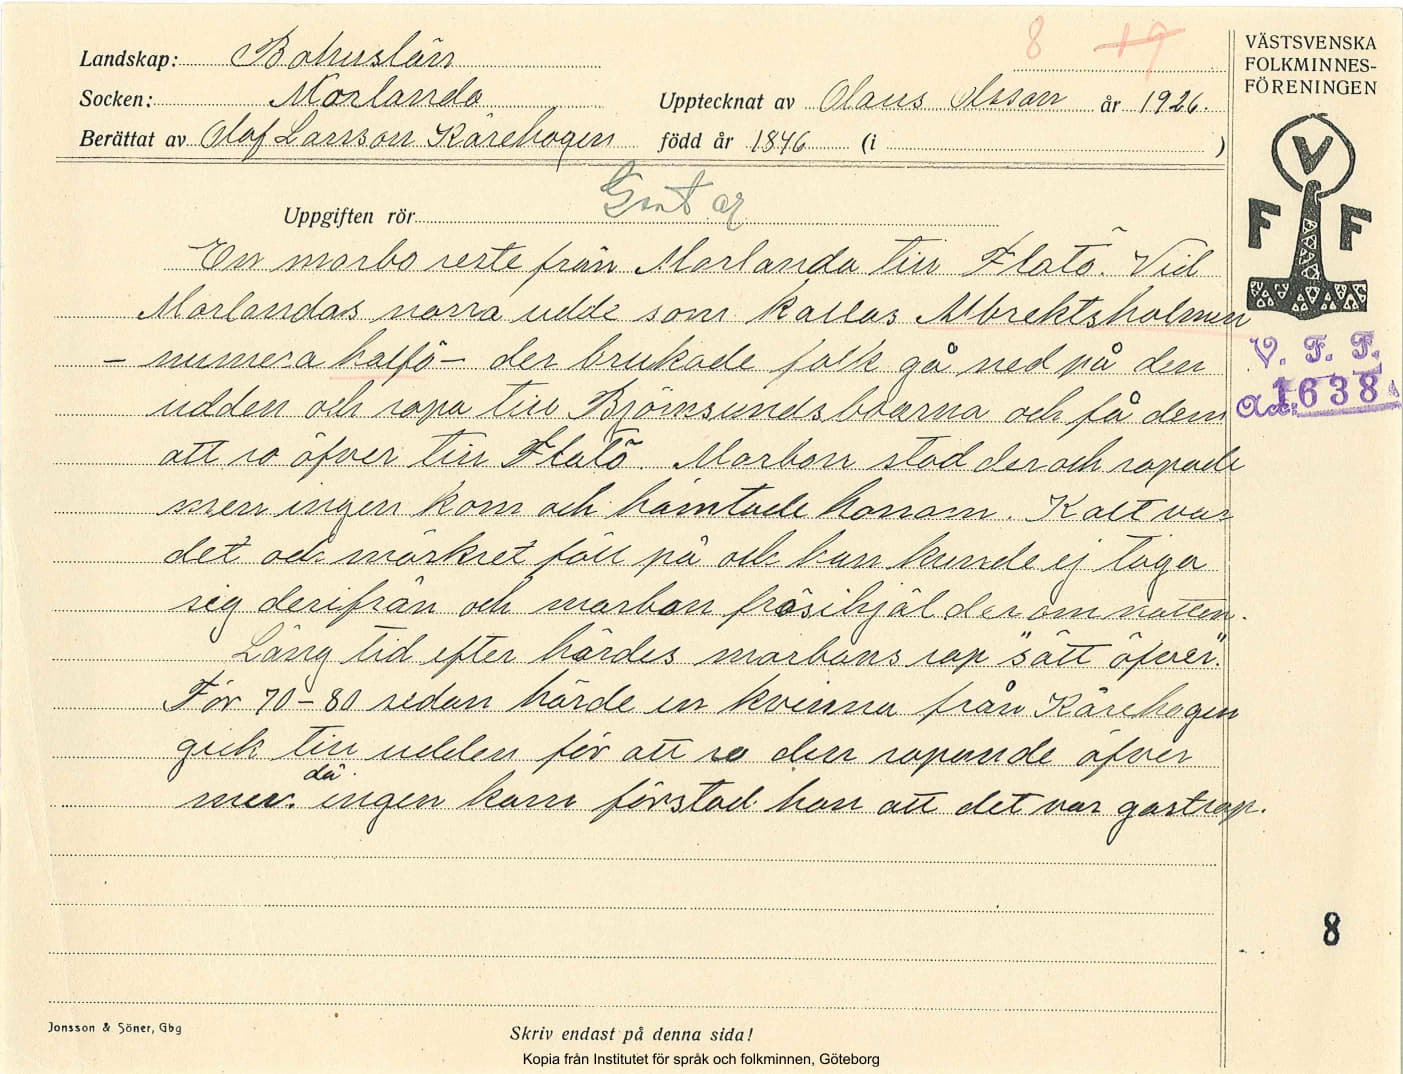 8 19
VÄSTSVENSKA
FOLKMINNES-
FÖRENINGEN
Landskap: Bohuslän
Socken: Morlanda
Upptecknat av Olaus Olsson år 1926.
Berättat av Olof Larsson Kärehogen född år 1846 (i )
V
F F
Uppgiften rör Gastar
En morbo reste från Morlanda till Flatö. Vid
Morlandas norra udde som kallas Albrektsholmen
– numera halfö – der brukade folk gå ned på den
udden och ropa till Björnsundsboarna och få dem
att ro öfver till Flatö. Morbon stod der och ropade
men ingen kom och hämtade honom. Kallt var
det och mörkret föll på och han kunde ej taga
sig derifrån och morbon frös ihjäl der om natten.
Lång tid efter hördes morbons rop "sätt öfver".
För 70-80 sedan hörde en kvinna från Kärehogen
gick till udden för att ro den ropande öfver
men då ingen kom förstod hon att det var gastrop.
V. F. F.
1638
8
Jonsson & Söner, Gbg
Skriv endast på denna sida!
Kopia från Institutet för språk och folkminnen, Göteborg